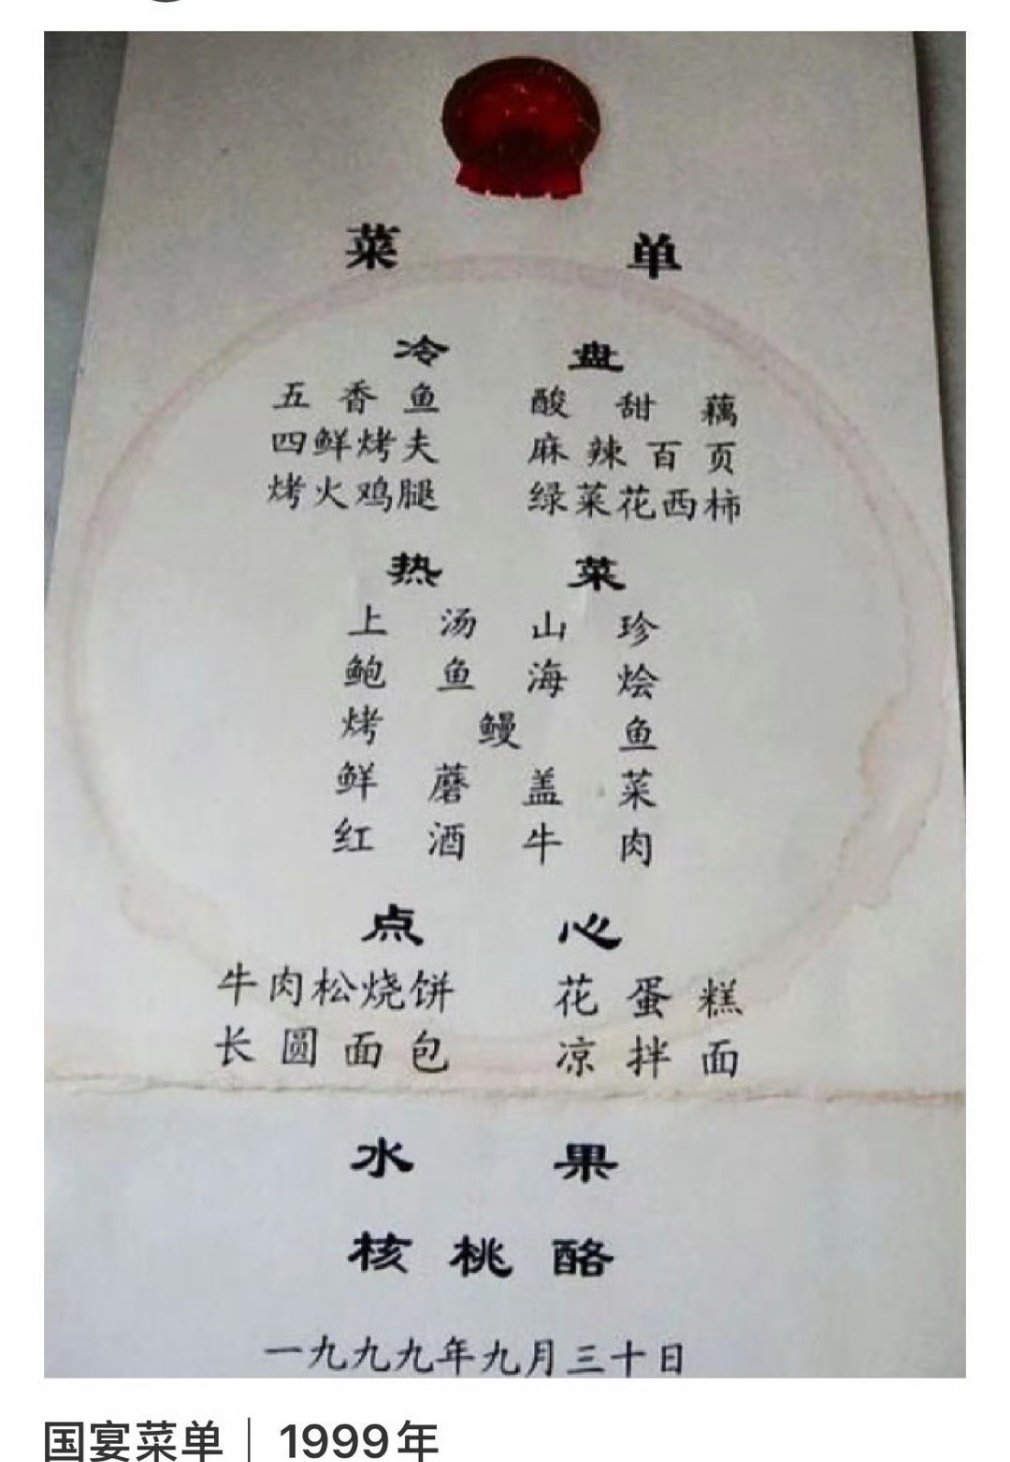 菜单
冷盘
五香鱼 酸甜藕
四鲜烤夫 麻辣百页
烤火鸡腿 绿菜花西柿
热菜
上汤山珍
鲍鱼海烩
烤鳗鱼
鲜蘑盖菜
红酒牛肉
点心
牛肉松烧饼 花蛋糕
长圆面包 凉拌面
水果
核桃酪
一九九九年九月三十日
国宴菜单｜1999年